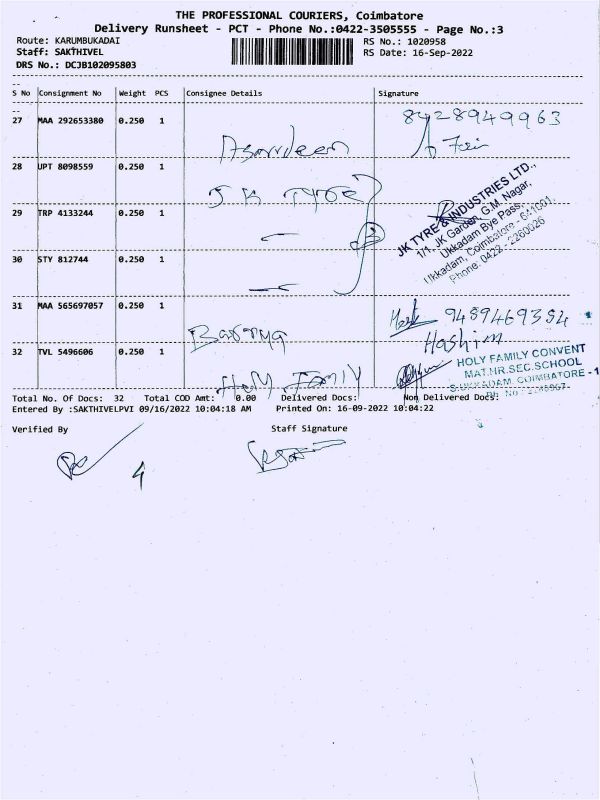 THE PROFESSIONAL COURIERS, Coimbatore
Delivery Runsheet - PCT - Phone No.:0422-3505555 - Page No.:3
Route: KARUMBUKADAI RS No.: 1020958
Staff: SAKTHIVEL RS Date: 16-Sep-2022
DRS No.: DCJB102095803
S No Consignment No Weight PCS Consignee Details Signature
27 MAA 292653380 0.250 1 8428949963
28 UPT 8098559 0.250 1 J K TYRE
29 TRP 4133244 0.250 1
JK TYRE & INDUSTRIES LTD.,
1/1, JK Garden, G.M. Nagar,
Ukkadam Bye Pass,
Ukkadam, Coimbatore - 641001.
Phone: 0422 - 2260026
30 STY 812744 0.250 1
31 MAA 565697057 0.250 1 9489469354
Hashim
32 TVL 5496606 0.250 1 Holy Family
HOLY FAMILY CONVENT
MAT.HR.SEC.SCHOOL
S.UKKADAM, COIMBATORE - 1
Total No. Of Docs: 32 Total COD Amt: 0.00 Delivered Docs: Non Delivered Docs:
Entered By :SAKTHIVELPVI 09/16/2022 10:04:18 AM Printed On: 16-09-2022 10:04:22
Verified By Staff Signature
4